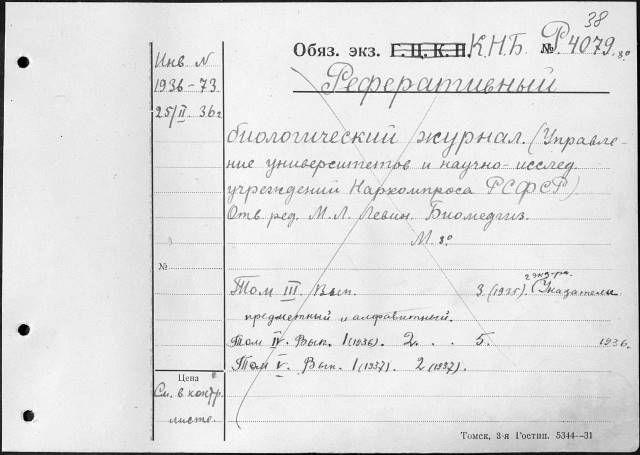 38
Обяз. экз. Г.Ц.К.П. К.Н.Б № Р4079. 8°
Инв. N
1936-73
25/II. 36г
Реферативный
биологический журнал. (Управле-
ние университетов и научно-исслед.
учреждений Наркомпроса РСФСР)
Отв. ред. М. Л. Левин. Биомедгиз.
М. 8°
№
2 экз-ра.
Том III. Вып. 3 (1935). Указатели
предметный и алфавитный.
Том IV. Вып. 1 (1936) 2. . 5. 1936.
Том V. Вып. 1 (1937). 2 (1937).
Цена
См. в контр.
листе.
Томск, 3-я Гостип. 5344—31